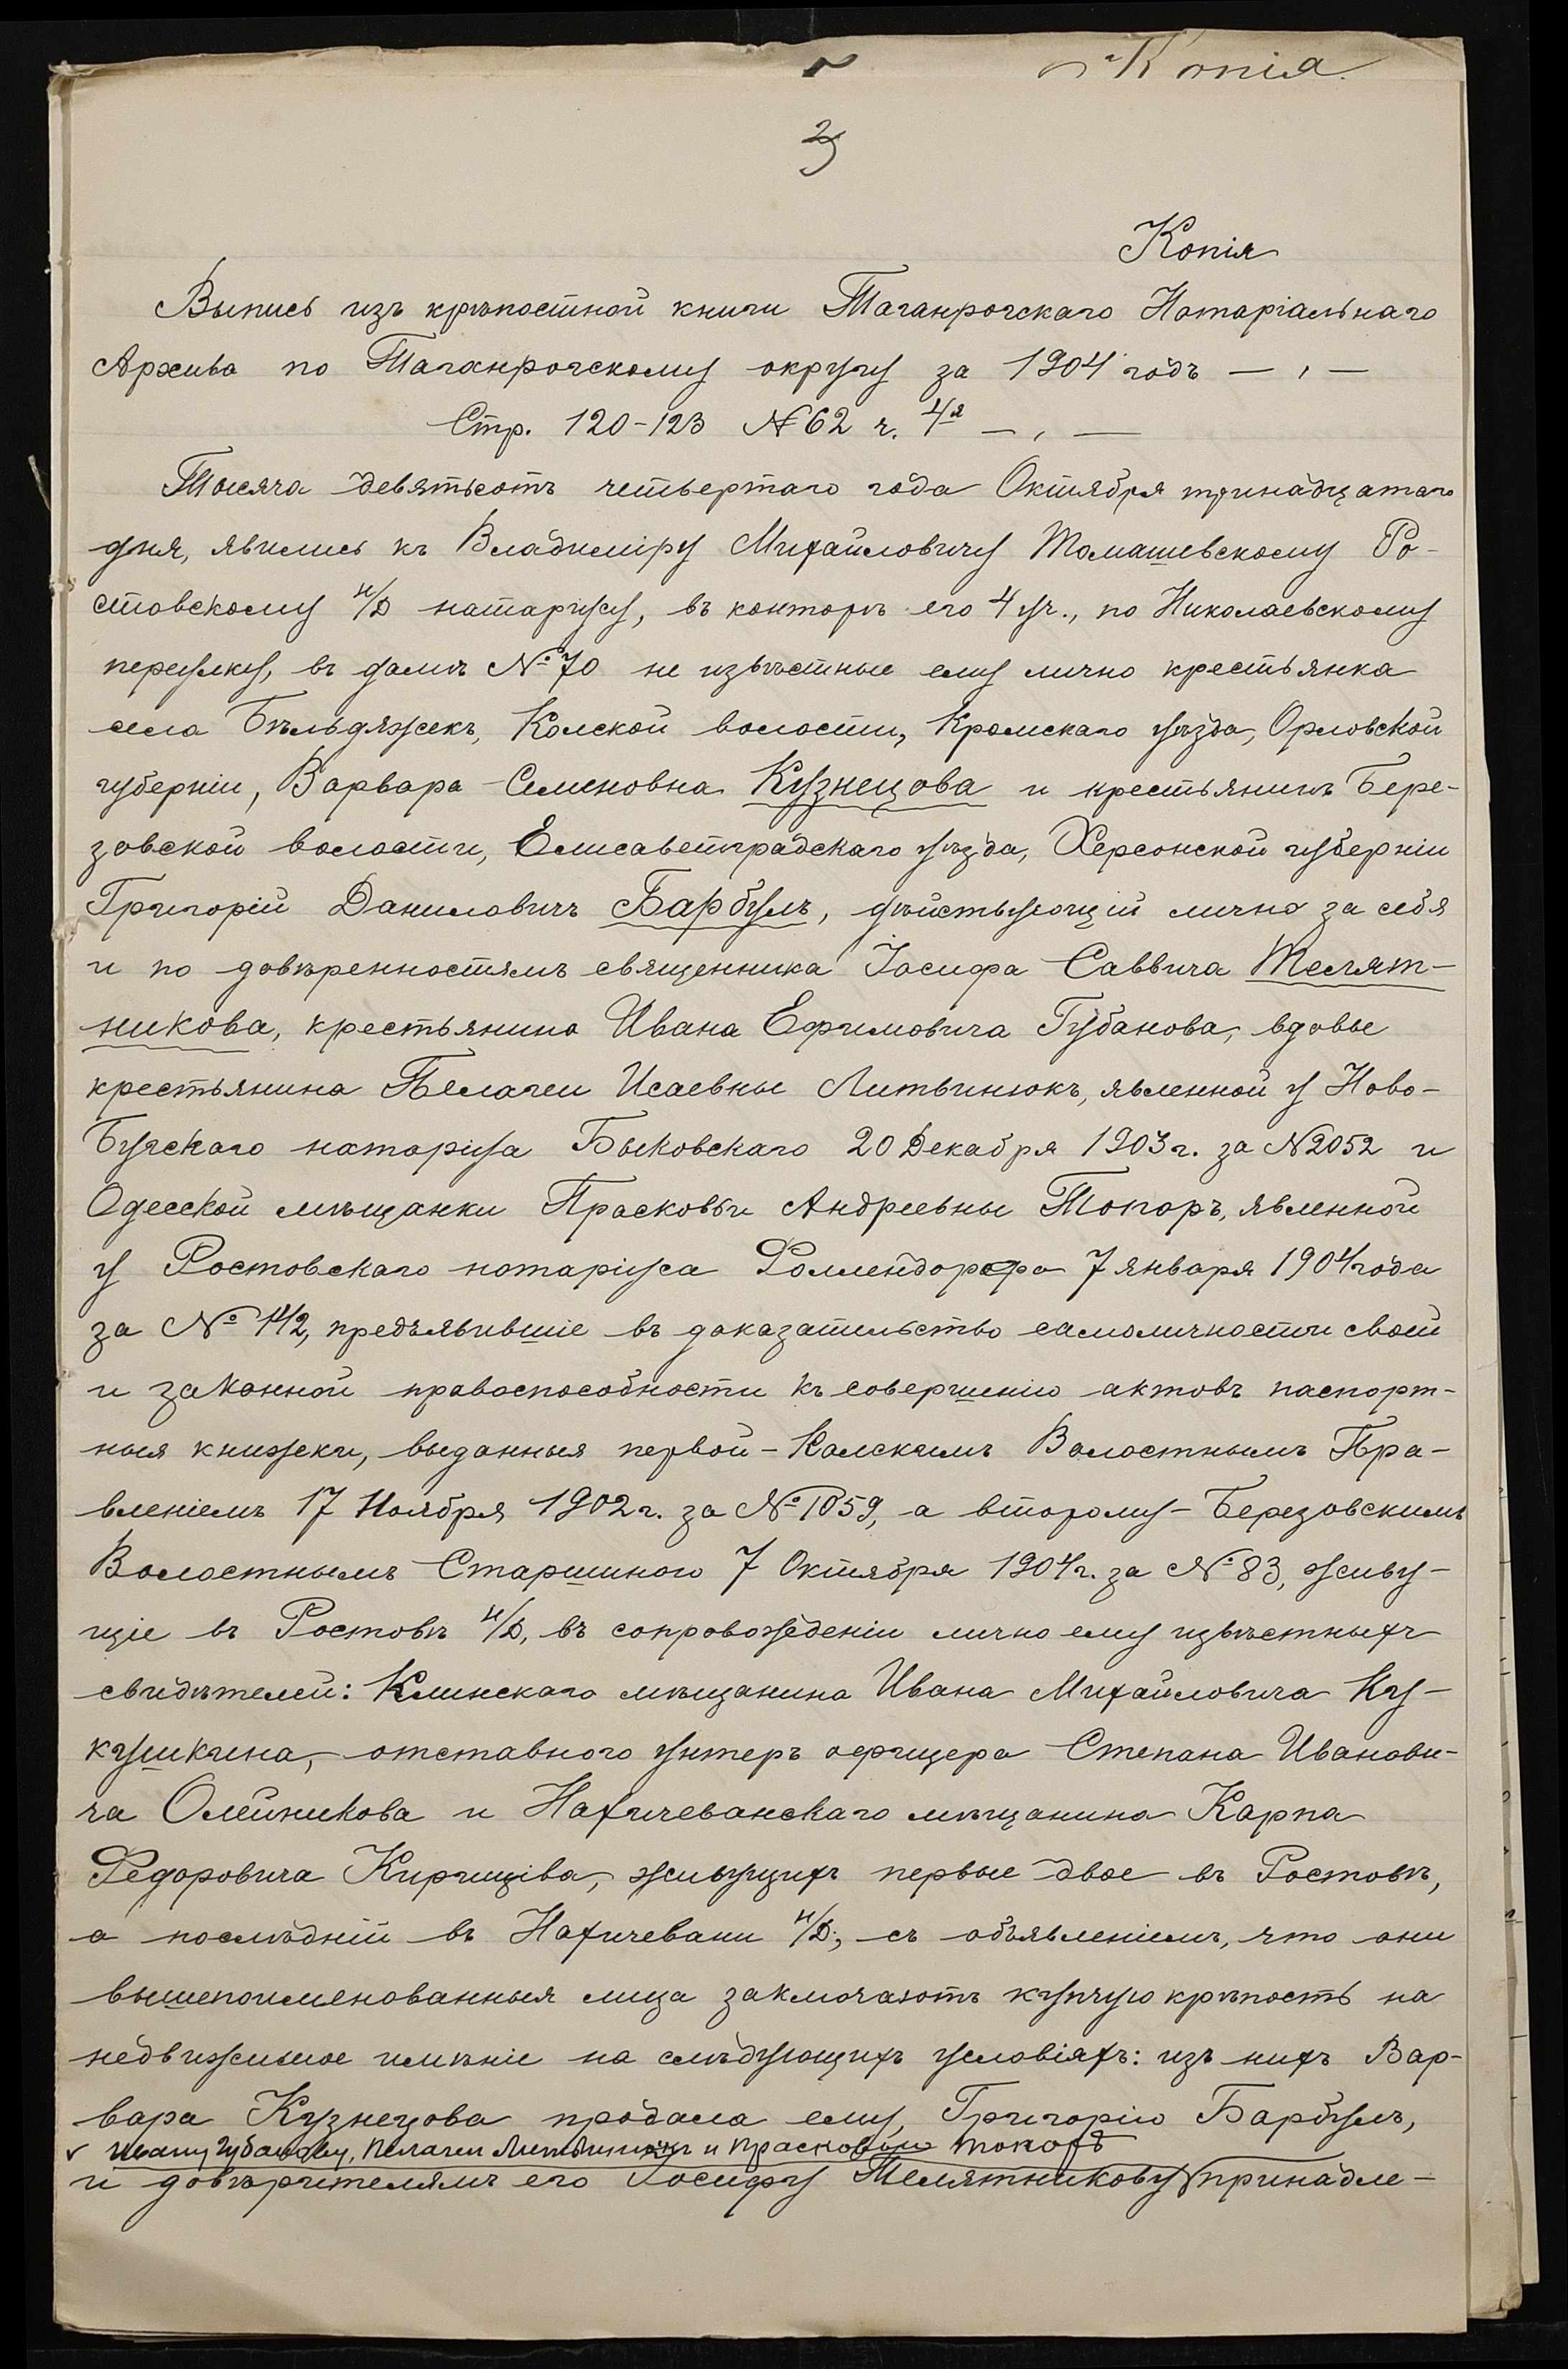 Копія
3
Копія
Выпись изъ крѣпостной книги Таганрогскаго Нотаріальнаго
Архива по Таганрогскому округу за 1904 годъ — „ —
Стр. 120-123 № 62 ч. 4я — „ —
Тысяча девятьсотъ четвертаго года Октября тринадцатаго
дня, явились къ Владиміру Михайловичу Томашевскому Ро-
стовскому н/Д нотаріусу, въ конторѣ его 4 уч., по Николаевскому
переулку, въ домѣ № 70 не извѣстные ему лично крестьянка
села Бѣльдяжекъ, Колской волости, Кромскаго уѣзда, Орловской
губерніи, Варвара Семеновна Кузнецова и крестьянинъ Бере-
зовской волости, Елисаветградскаго уѣзда, Херсонской губерніи
Григорій Даниловичъ Барбулъ, дѣйствующій лично за себя
и по довѣренностямъ священника Іосифа Саввича Телят-
никова, крестьянина Ивана Ефимовича Губанова, вдовы
крестьянина Пелагеи Исаевны Литвинюкъ, явленной у Ново-
Бугскаго нотаріуса Быковскаго 20 Декабря 1903 г. за № 2052 и
Одесской мѣщанки Прасковьи Андреевны Топоръ, явленной
у Ростовскаго нотаріуса Фоллендорфа 7 января 1904 года
за № 142, предъявившіе въ доказательство самоличности своей
и законной правоспособности къ совершенію актовъ паспорт-
ныя книжки, выданныя первой - Колскимъ Волостнымъ Пра-
вленіемъ 17 Ноября 1902 г. за № 1059, а второму - Березовскимъ
Волостнымъ Старшиною 7 Октября 1904 г. за № 83, живу-
щіе въ Ростовѣ н/Д, въ сопровожденіи лично ему извѣстныхъ
свидѣтелей: Клинскаго мѣщанина Ивана Михайловича Ку-
кушкина, отставного унтеръ офицера Степана Иванови-
ча Олейникова и Нахичеванскаго мѣщанина Карпа
Федоровича живущихъ первые двое въ Ростовѣ,
а послѣдній въ Нахичевани н/Д., съ объявленіемъ, что они
вышепоименованныя лица заключаютъ купчую крѣпость на
недвижимое имѣніе на слѣдующихъ условіяхъ: изъ нихъ Вар-
вара Кузнецова продала ему, Григорію Барбулъ,
√ Ивану Губанову, Пелагеи Литвинюкъ и Прасковьи Топоръ
и довѣрителямъ его Іосифу Телятникову √ принадле-